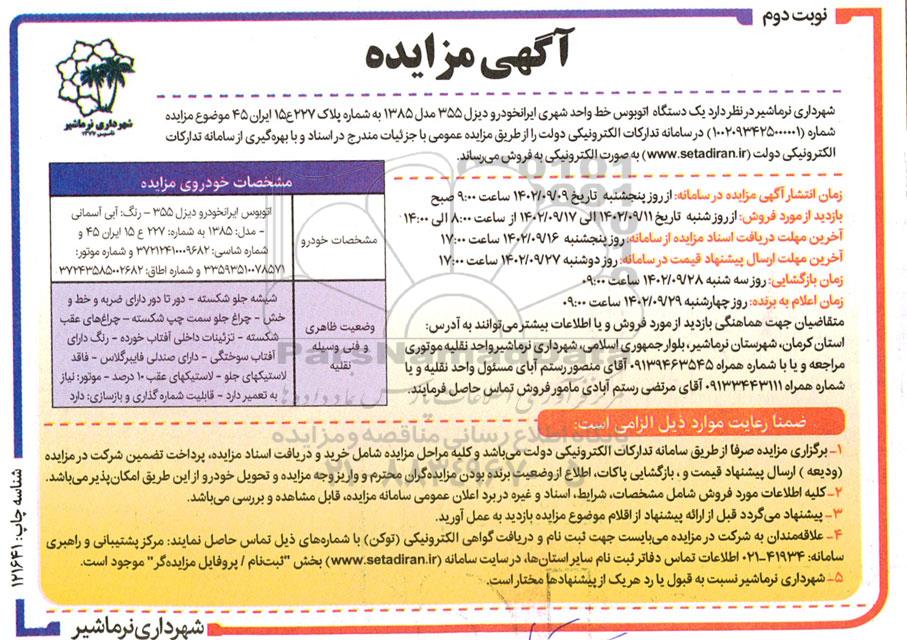 نوبت دوم
آگهی مزایده
شهرداری نرماشیر
تاسیس ۱۳۷۷
شهرداری نرماشیر در نظر دارد یک دستگاه اتوبوس خط واحد شهری ایرانخودرو دیزل ۳۵۵ مدل ۱۳۸۵ به شماره پلاک ۲۲۷ع۱۵ ایران ۴۵ موضوع مزایده
شماره (۱۰۰۲۰۹۳۴۲۵۰۰۰۰۰۱) در سامانه تدارکات الکترونیکی دولت را از طریق مزایده عمومی با جزئیات مندرج در اسناد و با بهره‌گیری از سامانه تدارکات
الکترونیکی دولت (www.setadiran.ir) به صورت الکترونیکی به فروش می‌رساند.
زمان انتشار آگهی مزایده در سامانه: از روز پنجشنبه تاریخ ۱۴۰۲/۰۹/۰۹ ساعت ۹:۰۰ صبح
بازدید از مورد فروش: از روز شنبه تاریخ ۱۴۰۲/۰۹/۱۱ الی ۱۴۰۲/۰۹/۱۷ از ساعت ۸:۰۰ الی ۱۴:۰۰
آخرین مهلت دریافت اسناد مزایده از سامانه: روز پنجشنبه ۱۴۰۲/۰۹/۱۶ ساعت ۱۷:۰۰
آخرین مهلت ارسال پیشنهاد قیمت در سامانه: روز دوشنبه ۱۴۰۲/۰۹/۲۷ ساعت ۱۷:۰۰
زمان بازگشایی: روز سه شنبه ۱۴۰۲/۰۹/۲۸ ساعت ۰۹:۰۰
زمان اعلام به برنده: روز چهارشنبه ۱۴۰۲/۰۹/۲۹ ساعت ۰۹:۰۰
متقاضیان جهت هماهنگی بازدید از مورد فروش و یا اطلاعات بیشتر می‌توانند به آدرس:
استان کرمان، شهرستان نرماشیر، بلوار جمهوری اسلامی، شهرداری نرماشیر واحد نقلیه موتوری
مراجعه و یا با شماره همراه ۰۹۱۳۹۴۶۳۵۴۵ آقای منصور رستم آبای مسئول واحد نقلیه و یا
شماره همراه ۰۹۱۳۳۴۴۳۱۱۱ آقای مرتضی رستم آبادی مامور فروش تماس حاصل فرمایند.
مشخصات خودروی مزایده
مشخصات خودرو
اتوبوس ایرانخودرو دیزل ۳۵۵ – رنگ: آبی آسمانی
– مدل: ۱۳۸۵ به شماره: ۲۲۷ ع ۱۵ ایران ۴۵ و
شماره شاسی: ۳۷۲۱۲۴۱۰۰۰۹۶۸۲ و شماره موتور:
۳۳۵۹۳۵۱۰۰۷۸۵۷۱ و شماره اطاق: ۳۷۲۴۳۵۸۵۰۰۲۶۸۲
وضعیت ظاهری
و فنی وسیله
نقلیه
شیشه جلو شکسته – دور تا دور دارای ضربه و خط و
خش – چراغ جلو سمت چپ شکسته – چراغ‌های عقب
شکسته – تزئینات داخلی آفتاب خورده – رنگ دارای
آفتاب سوختگی – دارای صندلی فایبرگلاس – فاقد
لاستیکهای جلو – لاستیکهای عقب ۱۰ درصد – موتور: نیاز
به تعمیر دارد – قابلیت شماره گذاری و بازسازی: دارد
ضمنا رعایت موارد ذیل الزامی است:
۱– برگزاری مزایده صرفا از طریق سامانه تدارکات الکترونیکی دولت می‌باشد و کلیه مراحل مزایده شامل خرید و دریافت اسناد مزایده، پرداخت تضمین شرکت در مزایده
(ودیعه) ارسال پیشنهاد قیمت و ، بازگشایی پاکات، اطلاع از وضعیت برنده بودن مزایده‌گران محترم و واریز وجه مزایده و تحویل خودرو از این طریق امکان‌پذیر می‌باشد.
۲– کلیه اطلاعات مورد فروش شامل مشخصات، شرایط، اسناد و غیره در برد اعلان عمومی سامانه مزایده، قابل مشاهده و بررسی می‌باشد.
۳– پیشنهاد می‌گردد قبل از ارائه پیشنهاد از اقلام موضوع مزایده بازدید به عمل آورید.
۴– علاقه‌مندان به شرکت در مزایده می‌بایست جهت ثبت نام و دریافت گواهی الکترونیکی (توکن) با شماره‌های ذیل تماس حاصل نمایند: مرکز پشتیبانی و راهبری
سامانه: ۴۱۹۳۴–۰۲۱ اطلاعات تماس دفاتر ثبت نام سایر استان‌ها، در سایت سامانه (www.setadiran.ir) بخش "ثبت‌نام / پروفایل مزایده‌گر" موجود است.
۵– شهرداری نرماشیر نسبت به قبول یا رد هر یک از پیشنهادها مختار است.
شهرداری نرماشیر
شناسه چاپ: ۱۲۱۶۴۱
ParsNamadData
پایگاه اطلاع رسانی مناقصه و مزایده